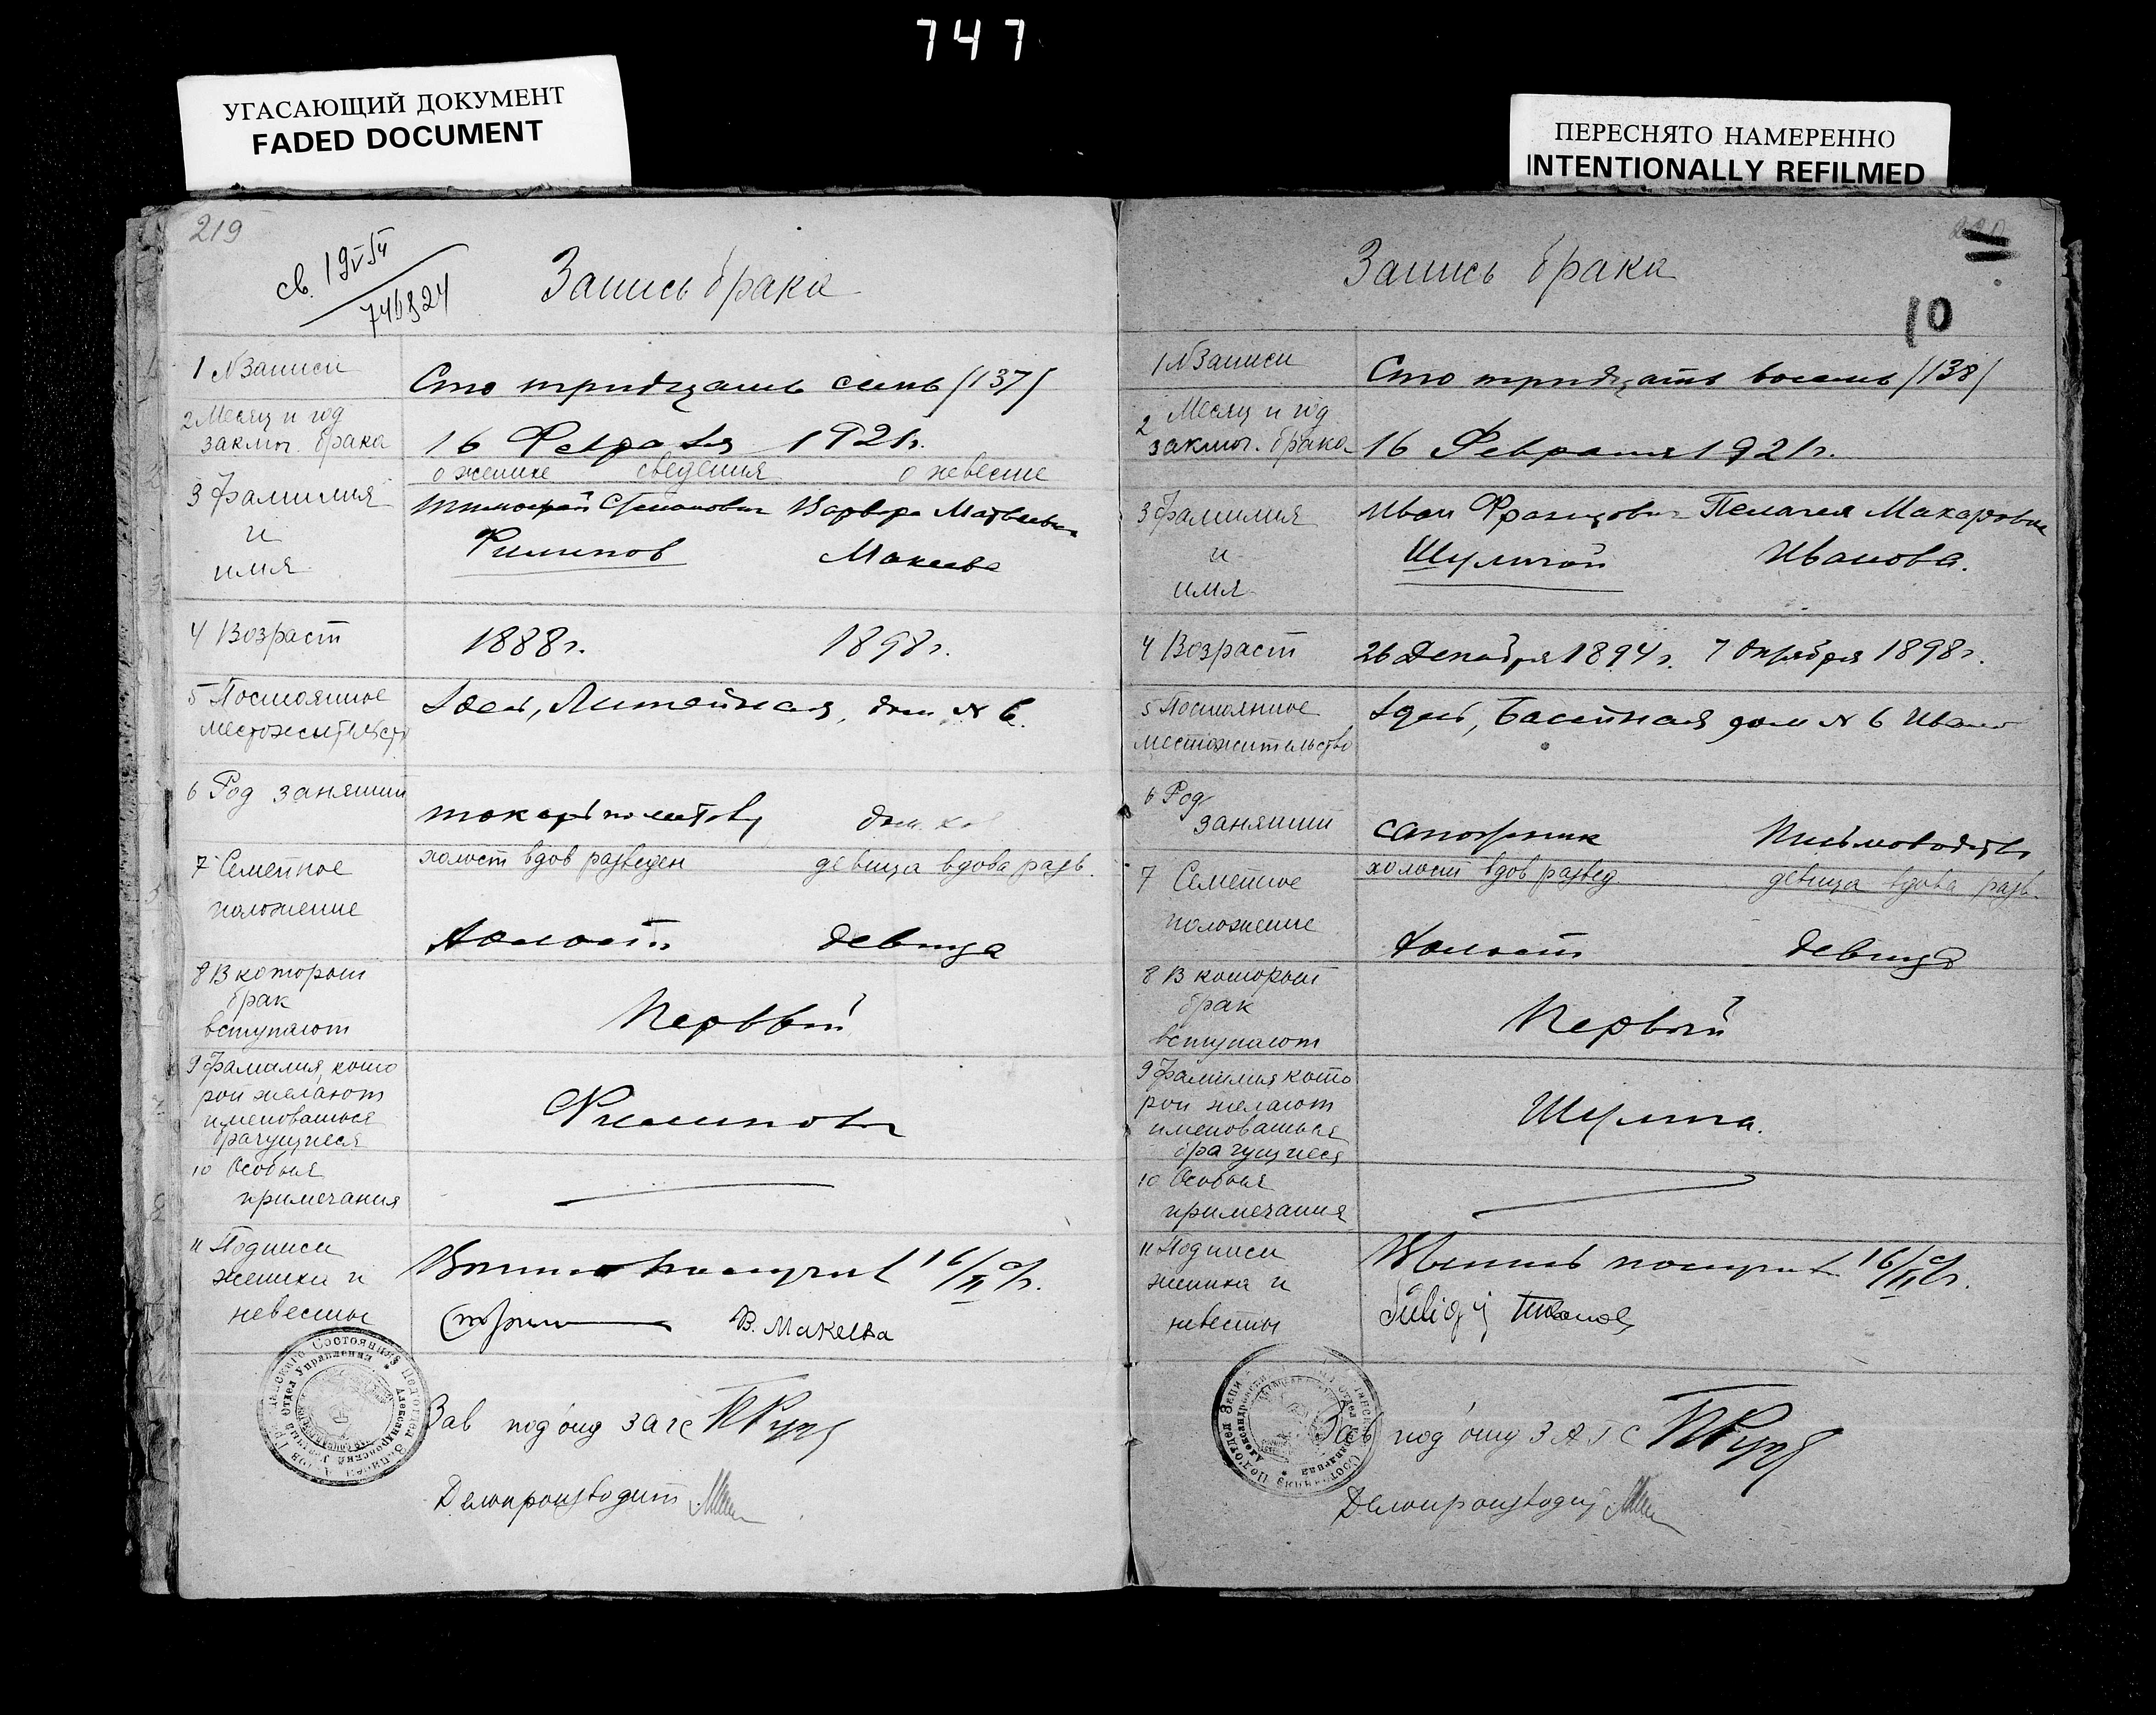 747
УГАСАЮЩИЙ ДОКУМЕНТ
FADED DOCUMENT
ПЕРЕСНЯТО НАМЕРЕННО
INTENTIONALLY REFILMED
219
св. 19 V 54
Запись брака
1 № Записи
Сто тридцать семь /137/
2 Месяц и год
заключ. брака
16 Февраля 1921г.
о женихе сведения о невесте
3 Фамилия
и
имя
Тимофей Степанович Варвара Матвеевна
Филипов Макеева
4 Возраст
1888г. 1898г.
5 Постоянное
местожительство
Здесь, Литейная, дом № 6.
6 Род занятий
токарь по металлу дом. хоз
7 Семейное
положение
холост вдов разведен девица вдова разв.
Холост девица
8 В который
брак
вступают
Первый
9 Фамилия, кото
рой желают
именоваться
брачущиеся
Филиповы
10 Особыя
примечания
11 Подписи
жениха и
невесты
получил 16/II с/г.
В. Макеева
Зав под'отд загс
Делопроизводит
10
Запись брака
1 № Записи
Сто тридцать восемь /138/
2 Месяц и год
заключ. брака
16 Февраля 1921г.
3 Фамилия
и
имя
Иван Францович Пелагея Макаровна
Шулигой Иванова.
4 Возраст
26 Декабря 1894г. 7 Октября 1898г.
5 Постоянное
местожительство
Здесь, Басейная дом № 6 Ивано
6 Род
занятий
сапожник Письмоводит
7 Семейное
положение
холост вдов развед девица вдова разв.
Холост девица
8 В который
брак
вступают
Первый
9 Фамилия кото
рой желают
именоваться
брачущиеся
Шулига.
10 Особыя
примечания
11 Подписи
жениха и
невесты
получил 16/II с/г.
Зав под'отд ЗАГС
Делопроизводит